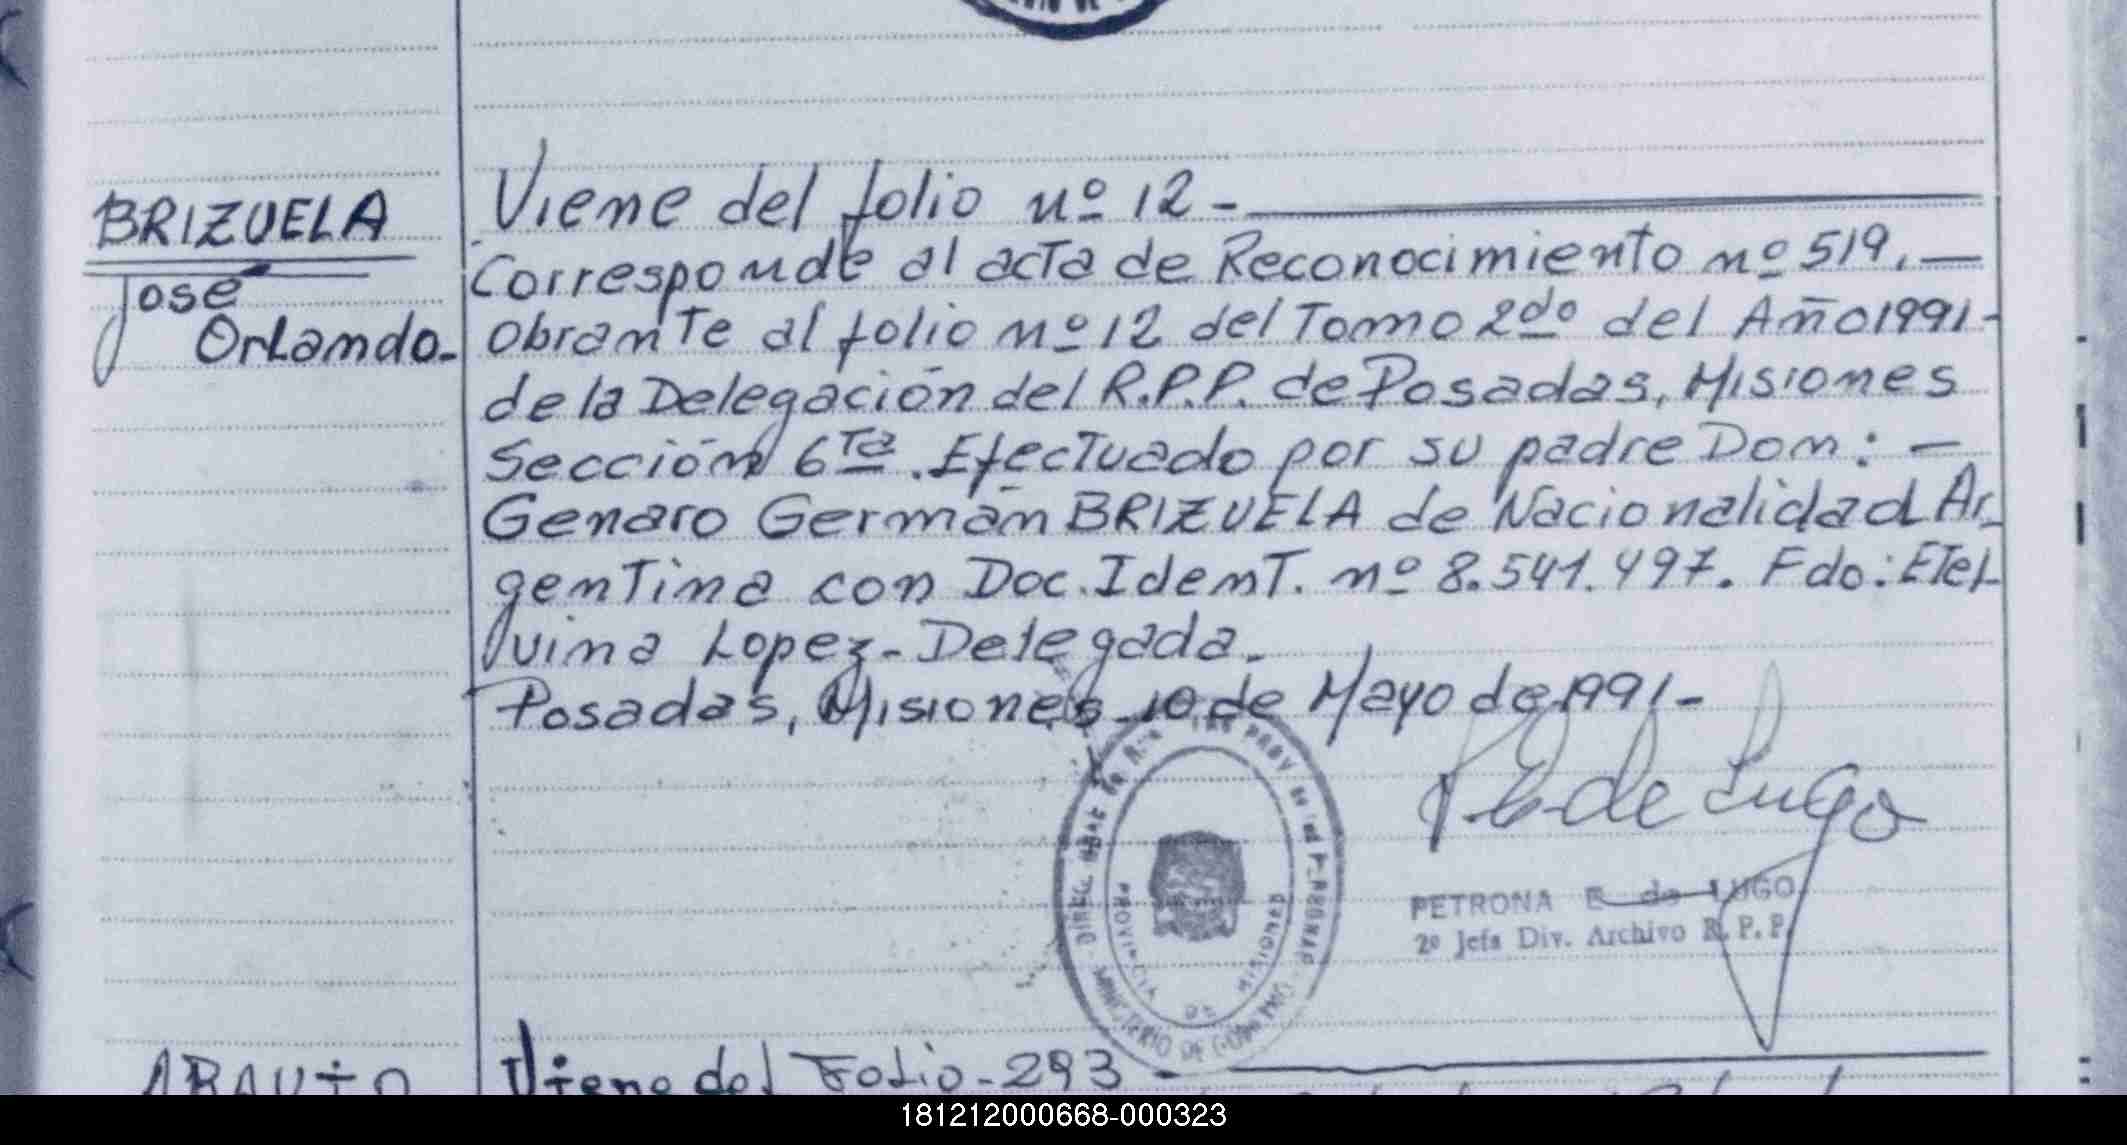 BRIZUELA
José
Orlando.-
Viene del folio nº 12 -
Corresponde al acta de Reconocimiento nº 519. —
obrante al folio nº 12 del Tomo 2do del Año 1991-
de la Delegación del R.P.P. de Posadas, Misiones
Sección 6ta. Efectuado por su padre Don: —
Genaro Germán BRIZUELA de Nacionalidad Ar_
gentina con Doc. Ident. nº 8.541.497. Fdo: Etel
vina Lopez - Delegada.
Posadas, Misiones 10 de Mayo de 1991-
de Lugo
PETRONA E de LUGO
2º Jefa Div. Archivo R. P. P.
PROVINCIA DE MISIONES
MINISTERIO DE GOBIERNO
ARAUJO
Viene del Folio - 293
181212000668-000323